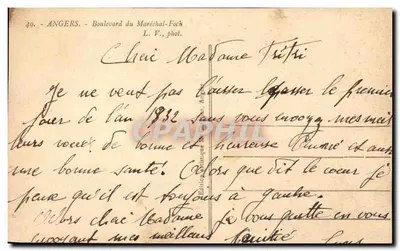 49. - ANGERS. - Boulevard du Maréchal-Foch
L. V., phot.
Cher Madame Fritri
Je ne veut pas laisser passer le premier
jour de l'an 1932 sans vous envoyez mes meil
leurs voeux de bonne et heureuse Année et aussi
une bonne santé. Alors que dit le coeur je
peux qu'il est toujours à gauche.
Alors cher Madame je vous quitte en vous
envoyant mes meilleurs Amitié